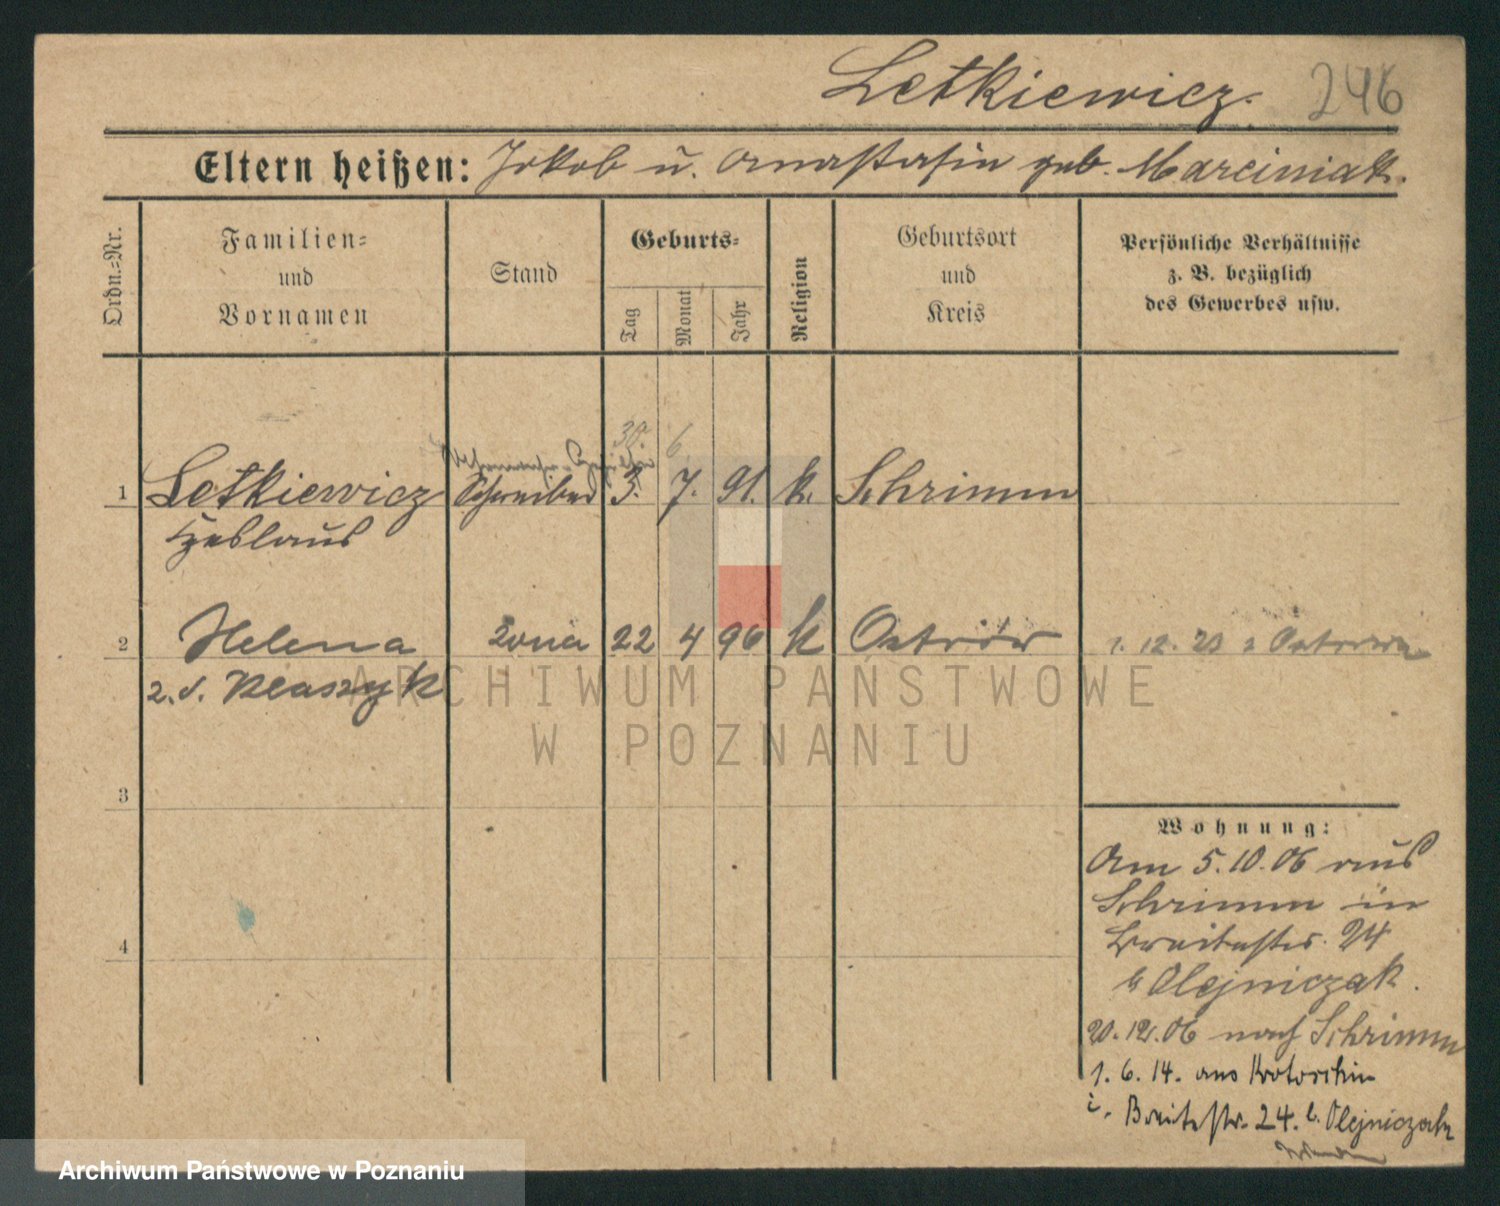 Letkiewicz. 246
Eltern heißen: Jakob u. Anastasia geb. Marciniak.
Ordn.-Nr.
Familien-
und
Vornamen
Stand
Geburts-
Tag
Monat
Jahr
Religion
Geburtsort
und
Kreis
Persönliche Verhältnisse
z. B. bezüglich
des Gewerbes usw.
30. 6.
1 Letkiewicz Schreiber 3. 7. 91. k. Schrimm
Czeslaus
2 Helena żona 22 4 96 k Ostrów 1. 12. 20 z Ostrowa
z. d. Błaszyk
3
4
Wohnung:
Am 5.10.06 aus
Schrimm in
Breitestr. 24
b Olejniczak.
20.12.06 nach Schrimm
1. 6. 14. aus Krotoschin
i. Breitestr. 24. b. Olejniczak
ARCHIWUM PAŃSTWOWE
W POZNANIU
Archiwum Państwowe w Poznaniu